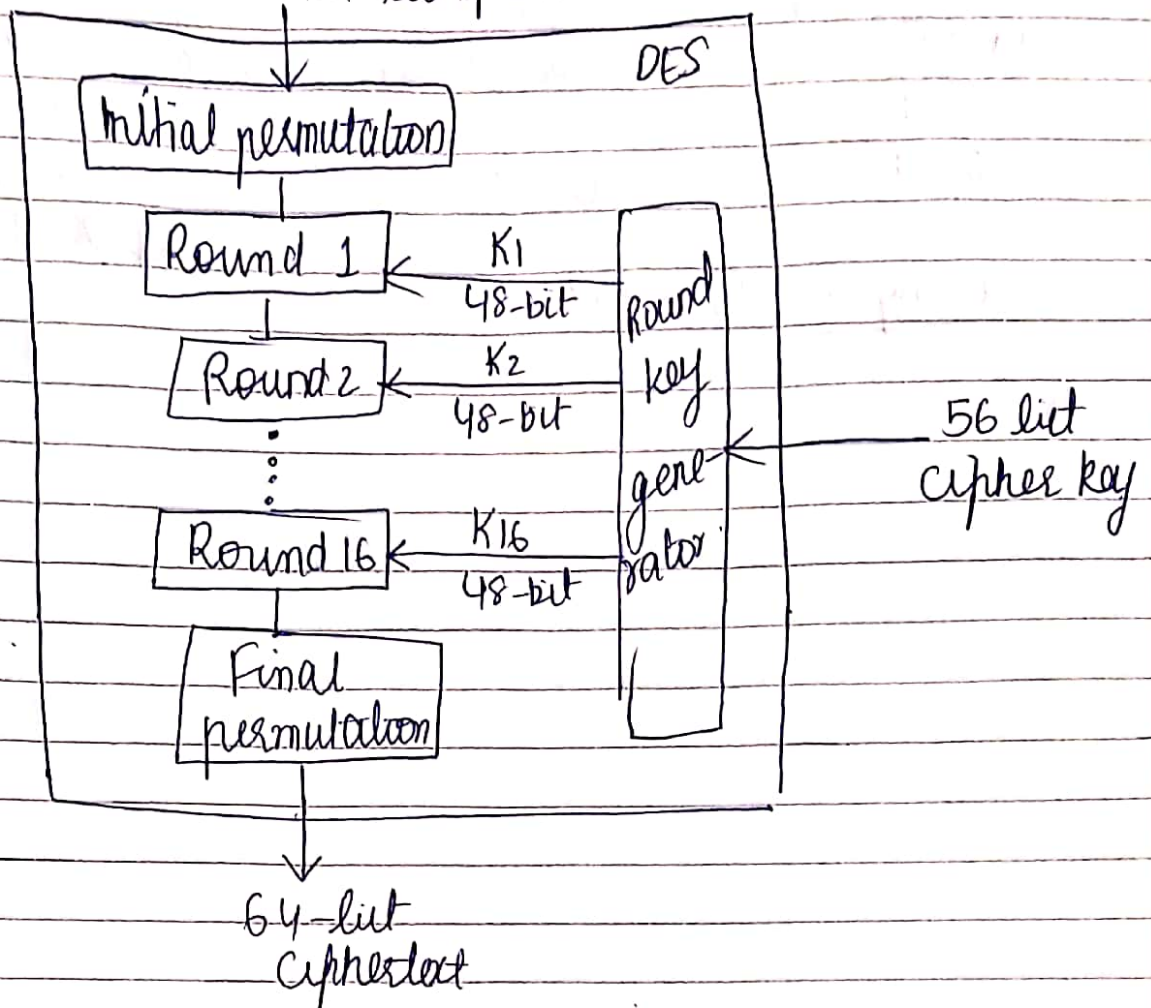 DES
Initial permutation
Round 1
K1
48-bit
Round 2
K2
48-bit
Round 16
K16
48-bit
Final
permutation
Round
key
gene-
rator
56 bit
cipher key
64-bit
ciphertext